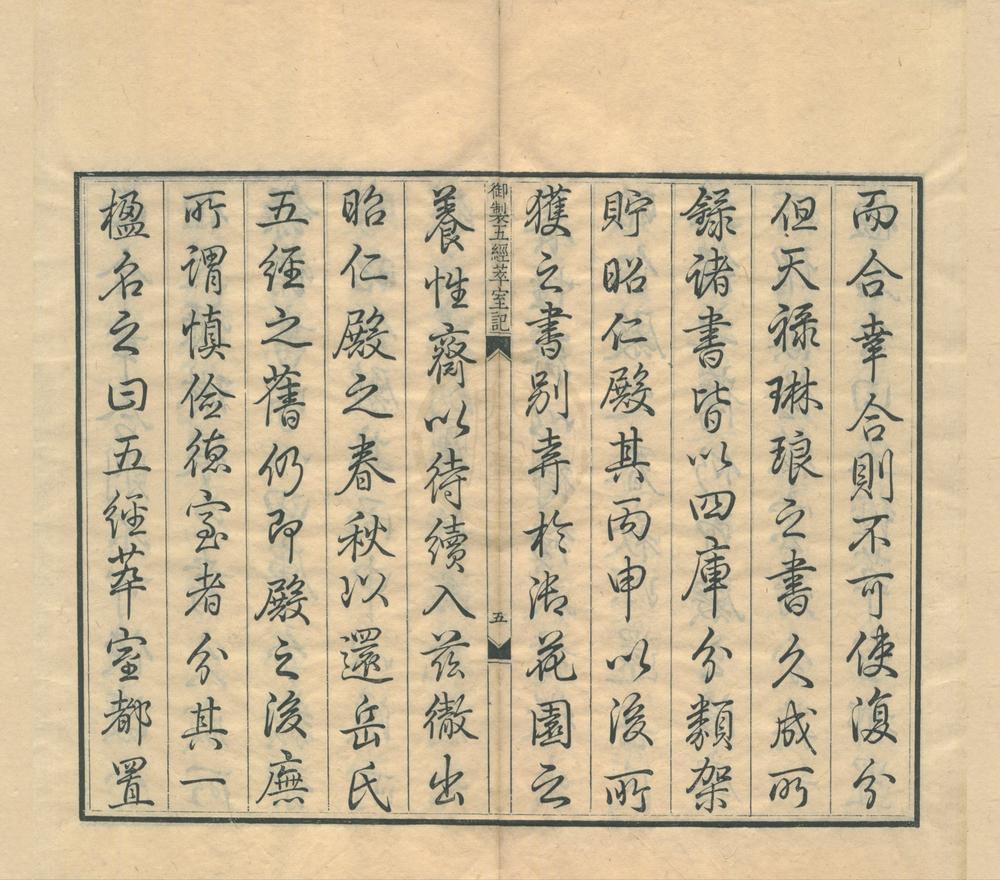 而合幸合則不可使復分
但天祿琳琅之書久成所
錄諸書皆以四庫分類架
貯昭仁殿其丙申以後所
獲之書別弆於御花園之
御製五經萃室記
五
養性齋以待續入茲徹出
昭仁殿之春秋以還岳氏
五經之舊仍即殿之後廡
所謂慎儉德室者分其一
楹名之曰五經萃室都置